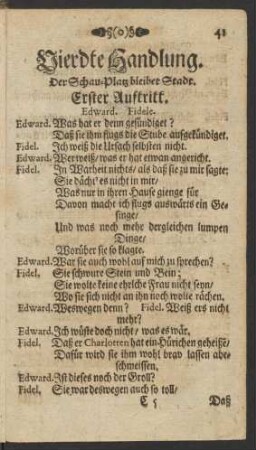 (o) 41
Vierdte Handlung.
Der Schau-Platz bleibet Stadt.
Erster Auftritt.
Edward. Fidele.
Edward. Was hat er denn gesündiget?
Daß sie ihm flugs die Stube aufgekündiget.
Fidel. Ich weiß die Ursach selbsten nicht.
Edward. Wer weiß/ was er hat etwan angericht.
Fidel. In Warheit nichts/ als daß sie zu mir sagte:
Sie dächt' es nicht in mir/
Was nur in ihren Hause gienge für
Davon macht ich flugs auswärts ein Ge-
singe/
Und was noch mehr dergleichen lumpen
Dinge/
Worüber sie so klagte.
Edward. War sie auch wohl auf mich zu sprechen?
Fidel. Sie schwure Stein und Bein;
Sie wolte keine ehrliche Frau nicht seyn/
Wo sie sich nicht an ihn noch wolte rächen.
Edward. Weswegen denn? Fidel. Weiß ers nicht
mehr?
Edward. Ich wüste doch nicht/ was es wär.
Fidel. Daß er Charlotten hat ein Hürichen geheißē/
Dafür wird sie ihm wohl brav lassen abe-
schmeissen.
Edward. Ist dieses noch der Groll?
Fidel. Sie war deswegen auch so toll/
Daß